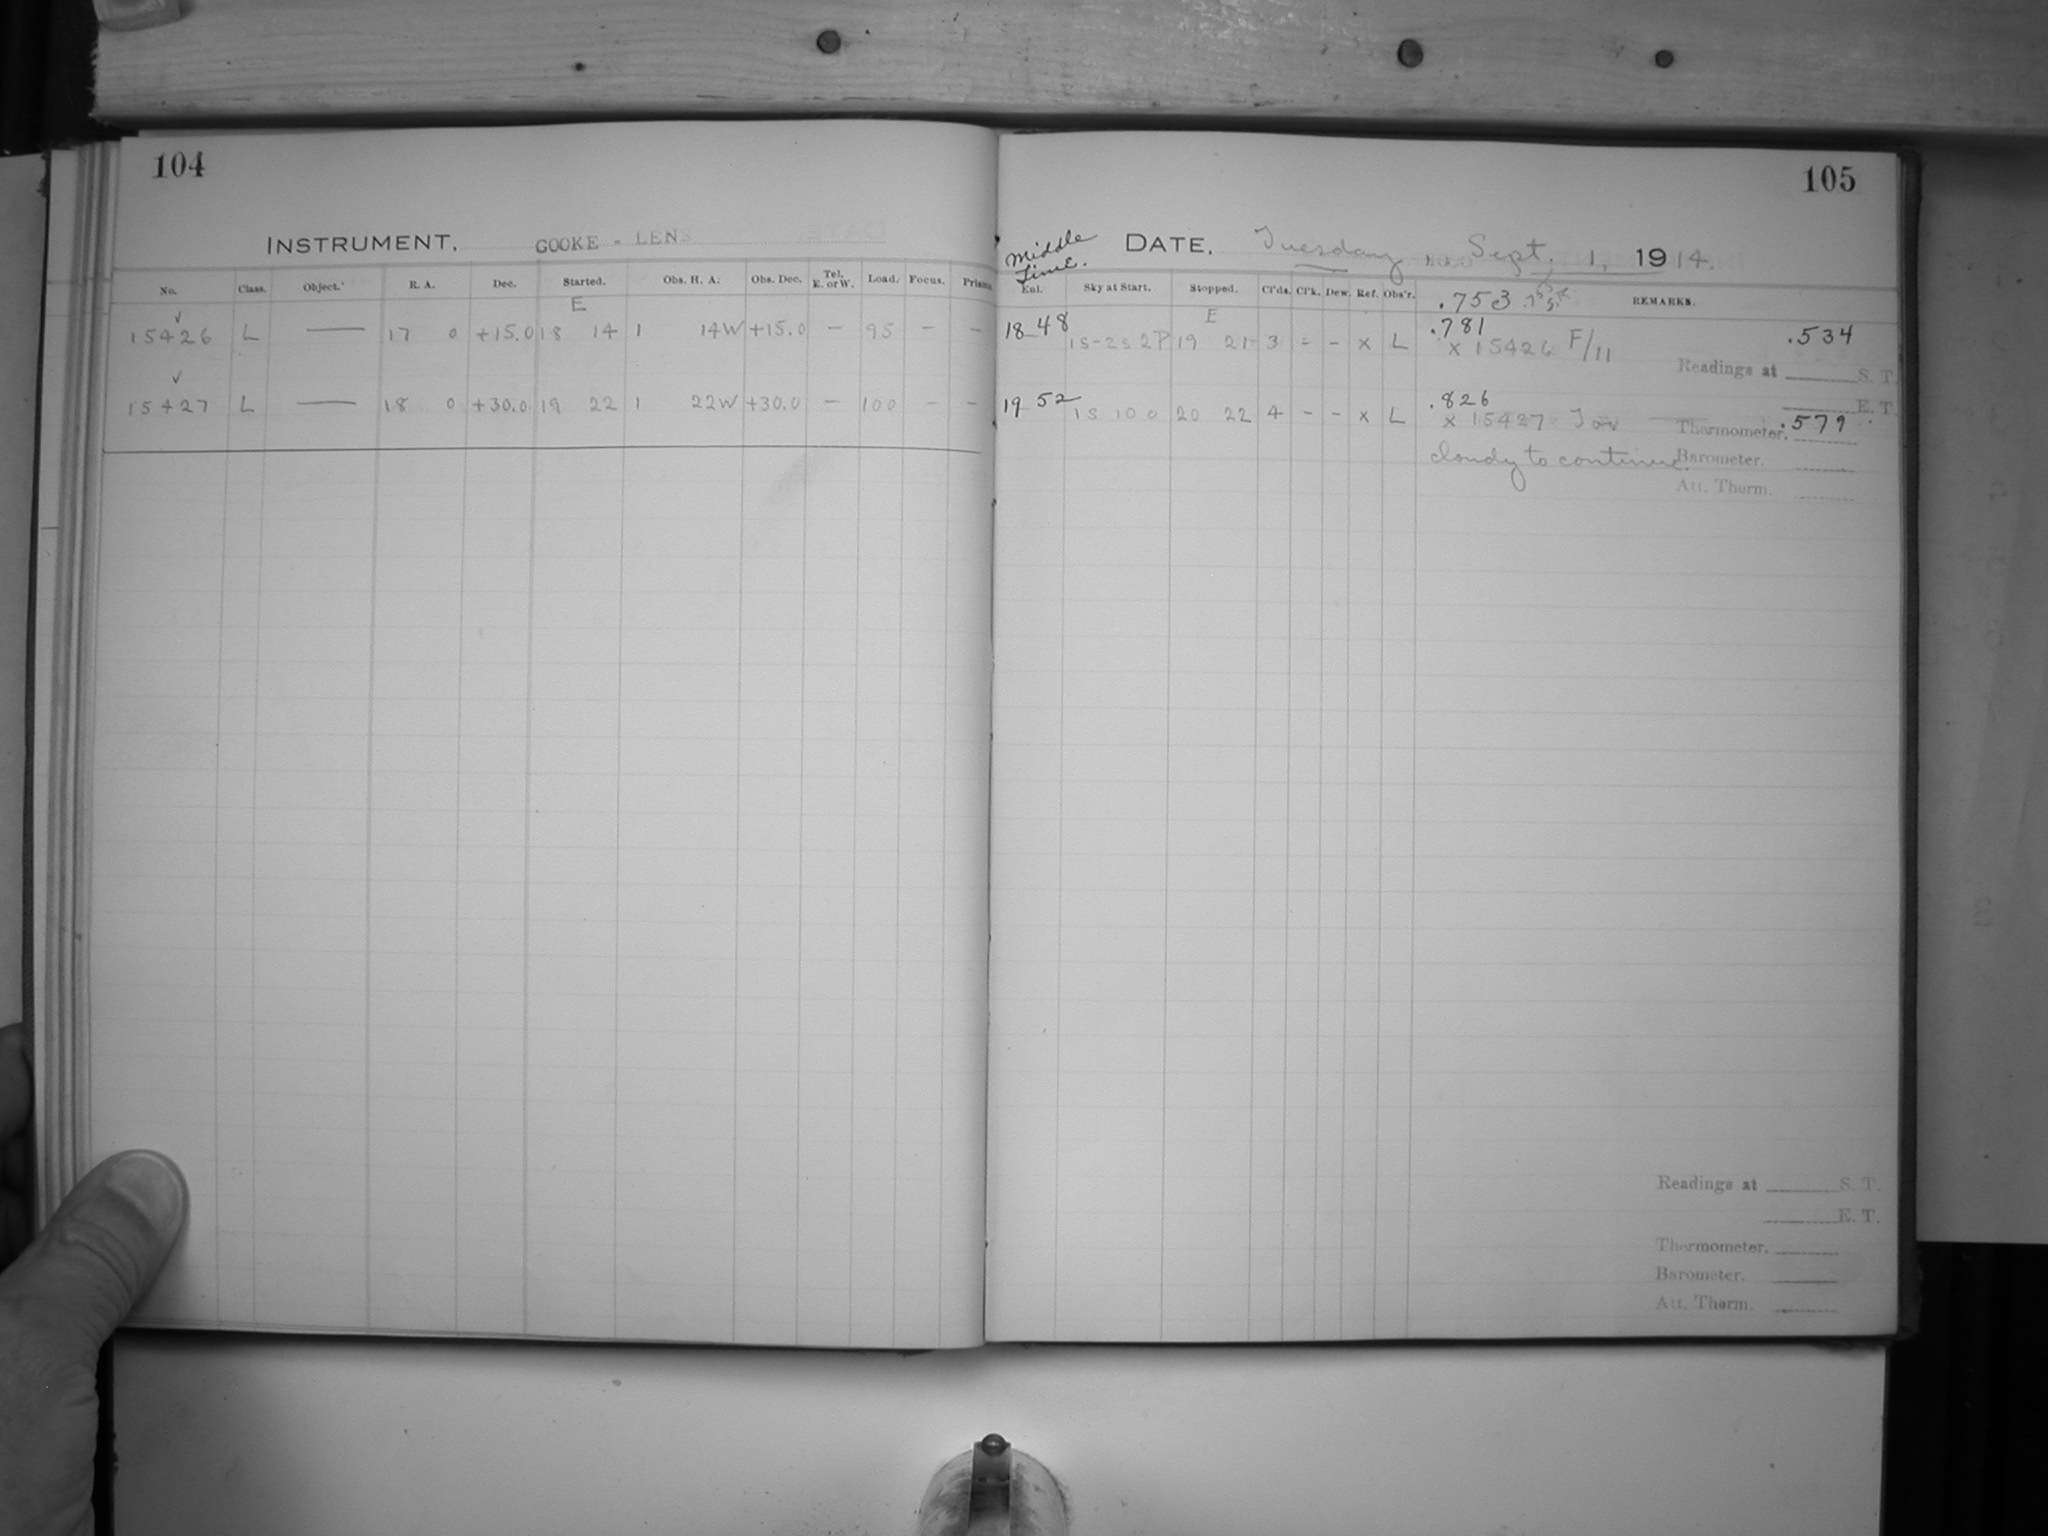 104
INSTRUMENT. COOKE - LENS
No. Class. Object. R. A. Dec. Started. Obs. H. A. Obs. Dec. Tel. E. or W. Load. Focus. Prisms
E
✓
15426 L — 17 0 +15.0 18 14 1 14W +15.0 — 95 — —
✓
15427 L — 18 0 +30.0 19 22 1 22W +30.0 — 100 — —
105
Middle Time.
DATE. Tuesday Sept. 1, 1914.
Enl. Sky at Start. Stopped. Cl'ds. Cl'k. Dew. Ref. Obs'r. .753 REMARKS.
E
18 48 1s-2s 2P 19 21 3 - - x L .781 .534
x 15426 F/11
Readings at S. T.
E. T.
19 52 1s 10 0 20 22 4 - - x L .826
x 15427 Thermometer. .579
cloudy to continue. Barometer.
Att. Therm.
Readings at S. T.
E. T.
Thermometer.
Barometer.
Att. Therm.